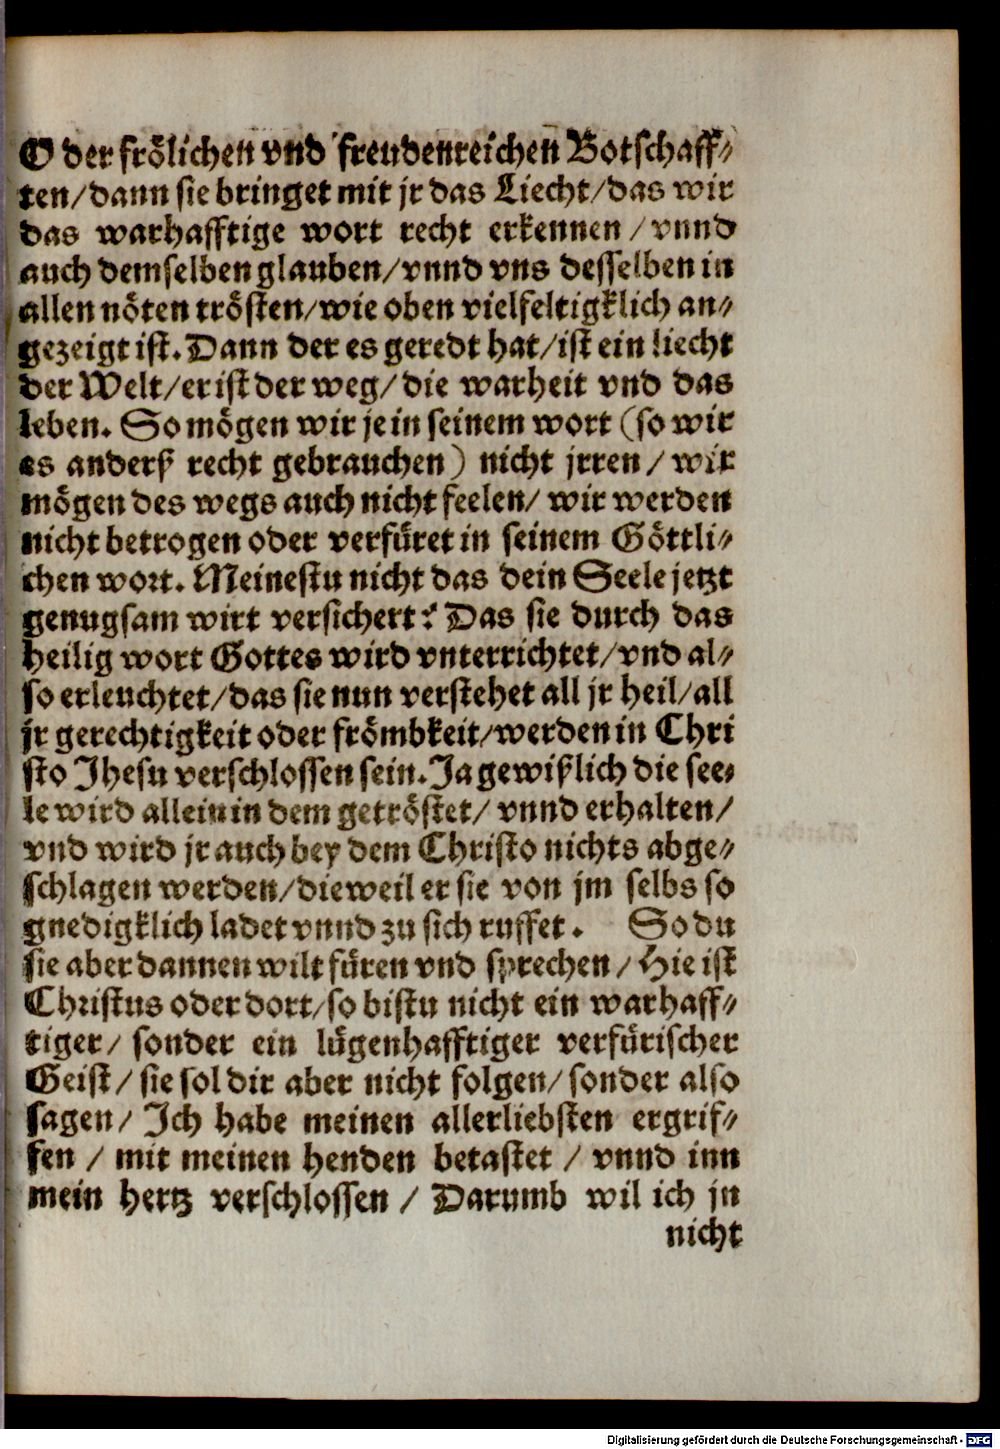 O der frölichen vnd freudenreichen Botschaff-
ten/dann sie bringet mit jr das Liecht/das wir
das warhafftige wort recht erkennen / vnnd
auch demselben glauben/vnnd vns desselben in
allen nöten trösten/wie oben vielfeltigklich an-
gezeigt ist. Dann der es geredt hat/ist ein liecht
der Welt/er ist der weg/die warheit vnd das
leben. So mögen wir je in seinem wort (so wir
es anderß recht gebrauchen) nicht jrren / wir
mögen des wegs auch nicht feelen/ wir werden
nicht betrogen oder verfüret in seinem Göttli-
chen wort. Meinestu nicht das dein Seele jetzt
genugsam wirt versichert? Das sie durch das
heilig wort Gottes wird vnterrichtet/vnd al-
so erleuchtet/das sie nun verstehet all jr heil/all
jr gerechtigkeit oder frömbkeit/werden in Chri
sto Jhesu verschlossen sein. Ja gewißlich die see-
le wird allein in dem getröstet/ vnnd erhalten/
vnd wird jr auch bey dem Christo nichts abge-
schlagen werden/dieweil er sie von jm selbs so
gnedigklich ladet vnnd zu sich ruffet. So du
sie aber dannen wilt füren vnd sprechen / Hie ist
Christus oder dort/so bistu nicht ein warhaff-
tiger/ sonder ein lügenhafftiger verfürischer
Geist / sie sol dir aber nicht folgen/sonder also
sagen/ Ich habe meinen allerliebsten ergrif-
fen / mit meinen henden betastet / vnnd inn
mein hertz verschlossen / Darumb wil ich jn
nicht
Digitalisierung gefördert durch die Deutsche Forschungsgemeinschaft - DFG